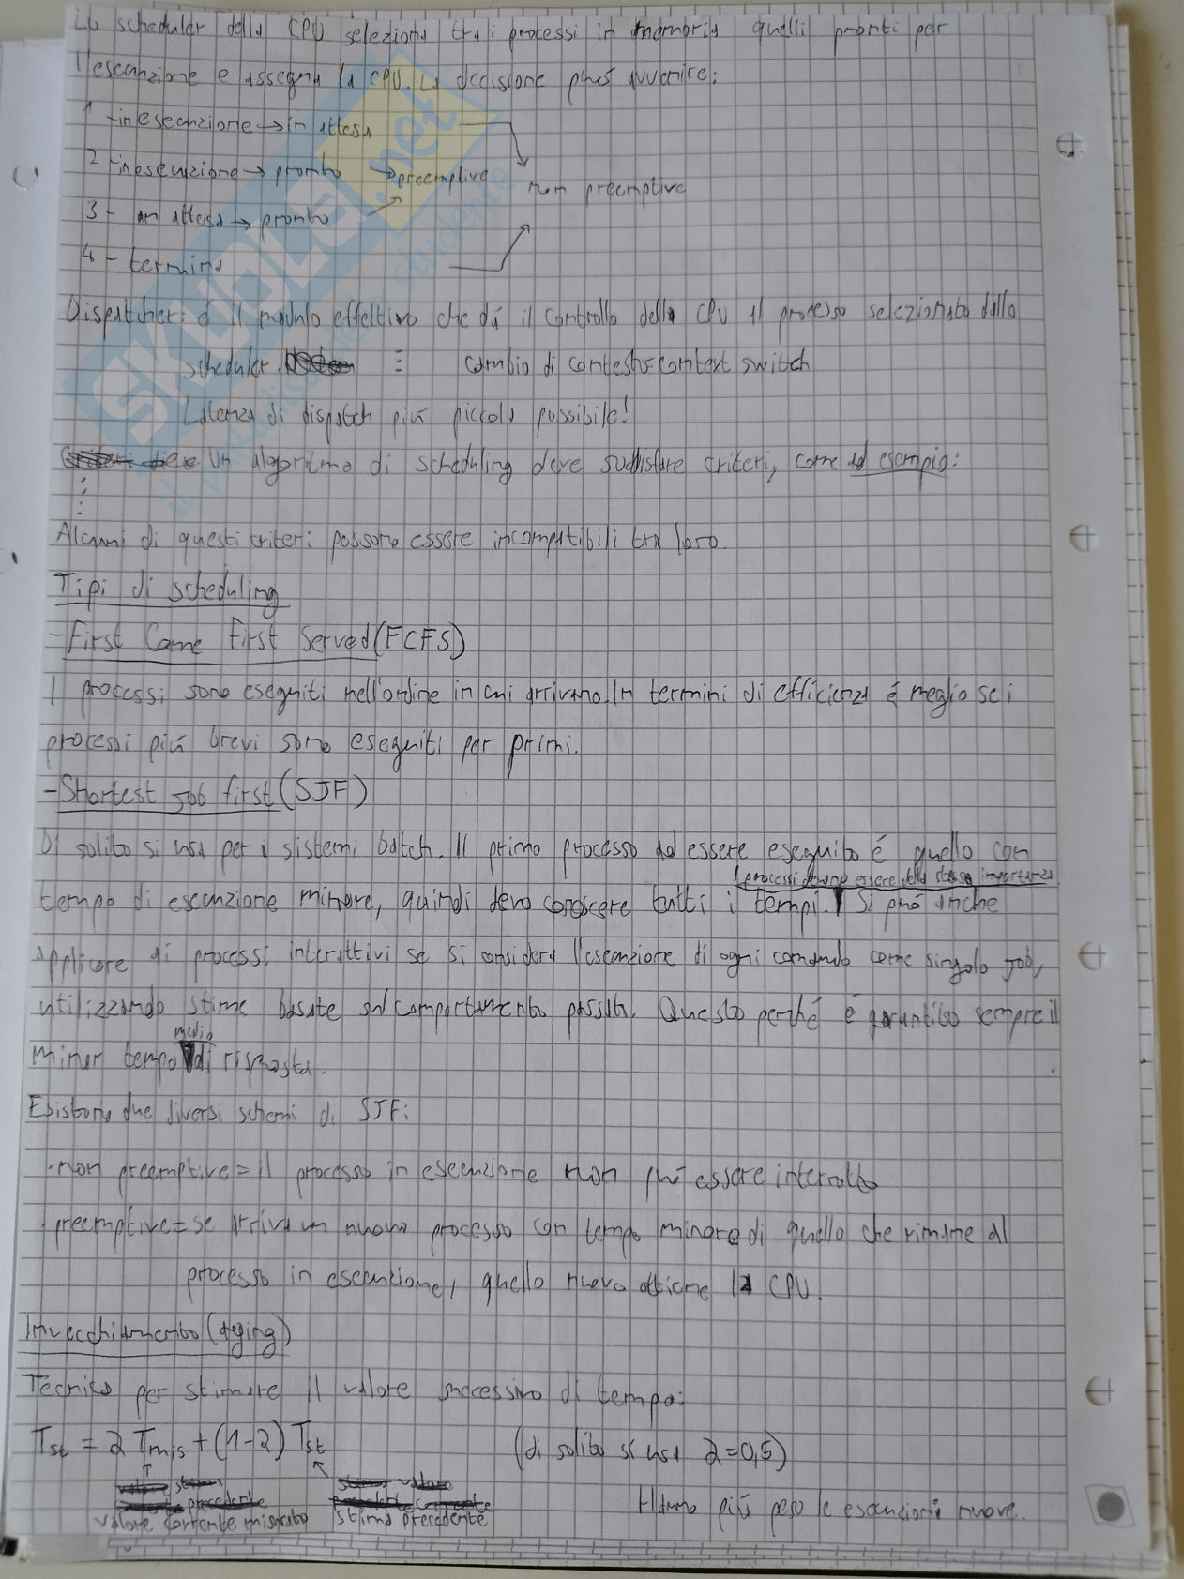 Lo scheduler della CPU seleziona tra i processi in memoria quelli pronti per
l'esecuzione e assegna la CPU. La decisione può avvenire:
1 - in esecuzione → in attesa
2 - in esecuzione → pronto → preemptive non preemptive
3 - in attesa → pronto
4 - termina
Dispatcher: è il modulo effettivo che dà il controllo della CPU al processo selezionato dallo
scheduler = cambio di contesto = context switch
Latenza di dispatch più piccola possibile!
Un algoritmo di scheduling deve soddisfare criteri, come ad esempio:
⋮
Alcuni di questi criteri possono essere incompatibili tra loro.
Tipi di scheduling
- First Come First Served (FCFS)
I processi sono eseguiti nell'ordine in cui arrivano. In termini di efficienza é meglio se i
processi più brevi sono eseguiti per primi.
- Shortest Job first (SJF)
Di solito si usa per i sistemi batch. Il primo processo ad essere eseguito é quello con
I processi devono essere della stessa importanza
tempo di esecuzione minore, quindi devo conoscere tutti i tempi. Si può anche
applicare ai processi interattivi se si considera l'esecuzione di ogni comando come singolo job,
utilizzando stime basate sul comportamento passato. Questo perché é garantito sempre il
minor tempo medio di risposta.
Esistono due diversi schemi di SJF:
· non preemptive = il processo in esecuzione non può essere interrotto
· preemptive = se arriva un nuovo processo con tempo minore di quello che rimane al
processo in esecuzione, quello nuovo ottiene la CPU.
Invecchiamento (aging)
Tecnica per stimare il valore successivo di tempo:
Tst = α Tmis + (1-α) Tst (di solito si usa α = 0,5)
valore corrente misurato stima precedente Hanno più peso le esecuzioni nuove.
SKUOLA.net